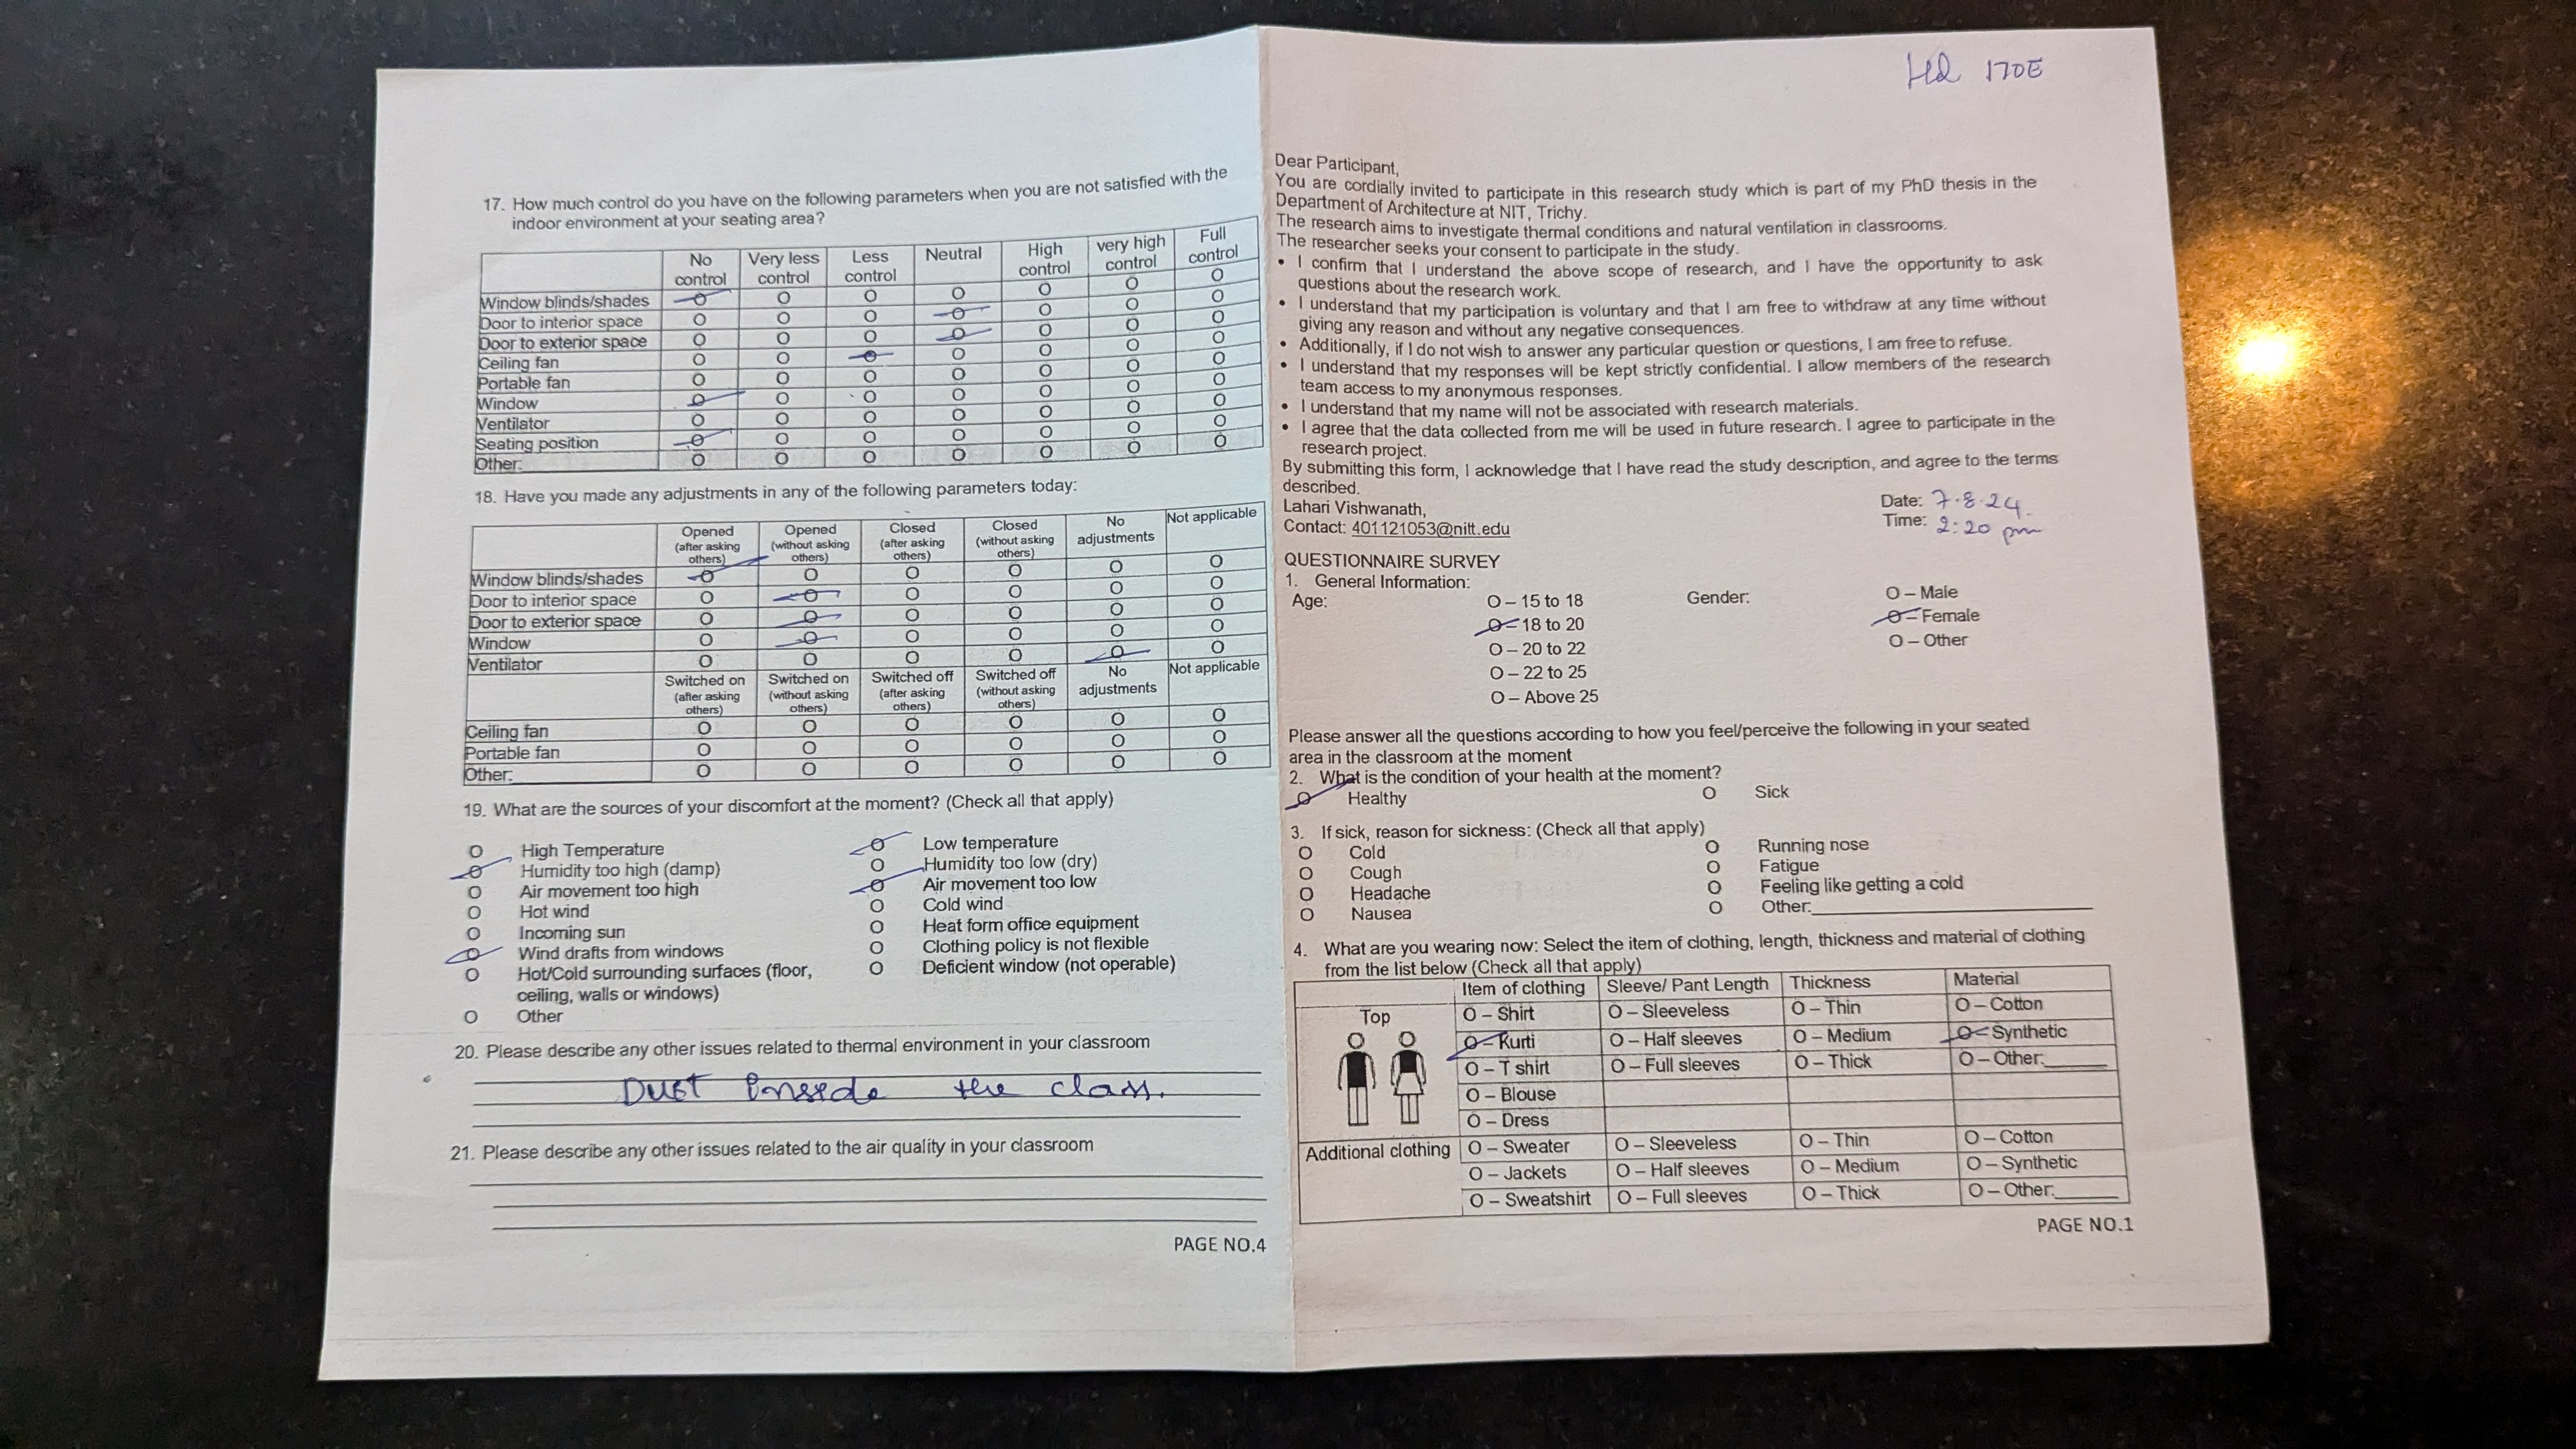 17. How much control do you have on the following parameters when you are not satisfied with the
indoor environment at your seating area?
No control Very less control Less control Neutral High control very high control Full control
Window blinds/shades O O O O O O O
Door to interior space O O O O O O O
Door to exterior space O O O O O O O
Ceiling fan O O O O O O O
Portable fan O O O O O O O
Window O O O O O O O
Ventilator O O O O O O O
Seating position O O O O O O O
Other: O O O O O O O
18. Have you made any adjustments in any of the following parameters today:
Opened (after asking others) Opened (without asking others) Closed (after asking others) Closed (without asking others) No adjustments Not applicable
Window blinds/shades O O O O O O
Door to interior space O O O O O O
Door to exterior space O O O O O O
Window O O O O O O
Ventilator O O O O O O
Switched on (after asking others) Switched on (without asking others) Switched off (after asking others) Switched off (without asking others) No adjustments Not applicable
Ceiling fan O O O O O O
Portable fan O O O O O O
Other: O O O O O O
19. What are the sources of your discomfort at the moment? (Check all that apply)
O High Temperature O Low temperature
O Humidity too high (damp) O Humidity too low (dry)
O Air movement too high O Air movement too low
O Hot wind O Cold wind
O Incoming sun O Heat form office equipment
O Wind drafts from windows O Clothing policy is not flexible
O Hot/Cold surrounding surfaces (floor, O Deficient window (not operable)
ceiling, walls or windows)
O Other
20. Please describe any other issues related to thermal environment in your classroom
Dust inside the class.
21. Please describe any other issues related to the air quality in your classroom
PAGE NO.4
170E
Dear Participant,
You are cordially invited to participate in this research study which is part of my PhD thesis in the
Department of Architecture at NIT, Trichy.
The research aims to investigate thermal conditions and natural ventilation in classrooms.
The researcher seeks your consent to participate in the study.
• I confirm that I understand the above scope of research, and I have the opportunity to ask
questions about the research work.
• I understand that my participation is voluntary and that I am free to withdraw at any time without
giving any reason and without any negative consequences.
• Additionally, if I do not wish to answer any particular question or questions, I am free to refuse.
• I understand that my responses will be kept strictly confidential. I allow members of the research
team access to my anonymous responses.
• I understand that my name will not be associated with research materials.
• I agree that the data collected from me will be used in future research. I agree to participate in the
research project.
By submitting this form, I acknowledge that I have read the study description, and agree to the terms
described.
Lahari Vishwanath, Date: 7.8.24.
Contact: 401121053@nitt.edu Time: 2:20 pm
QUESTIONNAIRE SURVEY
1. General Information:
Age: O – 15 to 18 Gender: O – Male
O – 18 to 20 O – Female
O – 20 to 22 O – Other
O – 22 to 25
O – Above 25
Please answer all the questions according to how you feel/perceive the following in your seated
area in the classroom at the moment
2. What is the condition of your health at the moment?
O Healthy O Sick
3. If sick, reason for sickness: (Check all that apply)
O Cold O Running nose
O Cough O Fatigue
O Headache O Feeling like getting a cold
O Nausea O Other:
4. What are you wearing now: Select the item of clothing, length, thickness and material of clothing
from the list below (Check all that apply)
Item of clothing Sleeve/ Pant Length Thickness Material
Top O – Shirt O – Sleeveless O – Thin O – Cotton
O – Kurti O – Half sleeves O – Medium O – Synthetic
O – T shirt O – Full sleeves O – Thick O – Other:
O – Blouse
O – Dress
Additional clothing O – Sweater O – Sleeveless O – Thin O – Cotton
O – Jackets O – Half sleeves O – Medium O – Synthetic
O – Sweatshirt O – Full sleeves O – Thick O – Other:
PAGE NO.1